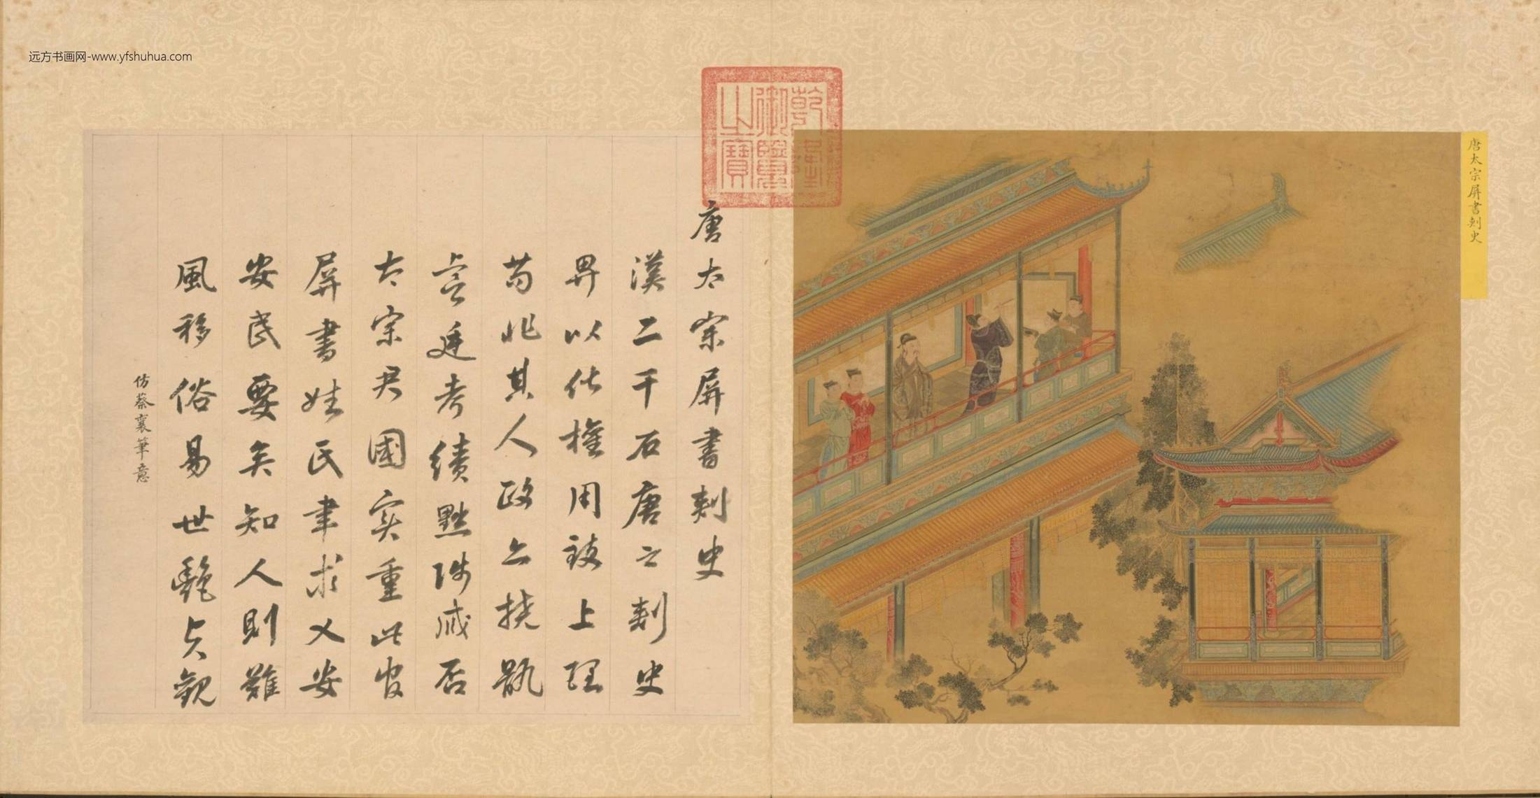 远方书画网-www.yfshuhua.com
乾隆御覽之寶
唐太宗屏書刺史
唐太宗屏書刺史
漢二千石唐之刺史
畀以化權用致上理
苟非其人政亦撓骫
虞廷考績黜陟臧否
太宗君國實重此官
屏書姓氏聿求乂安
安民要矣知人則難
風移俗易世艷貞觀
仿蔡襄筆意